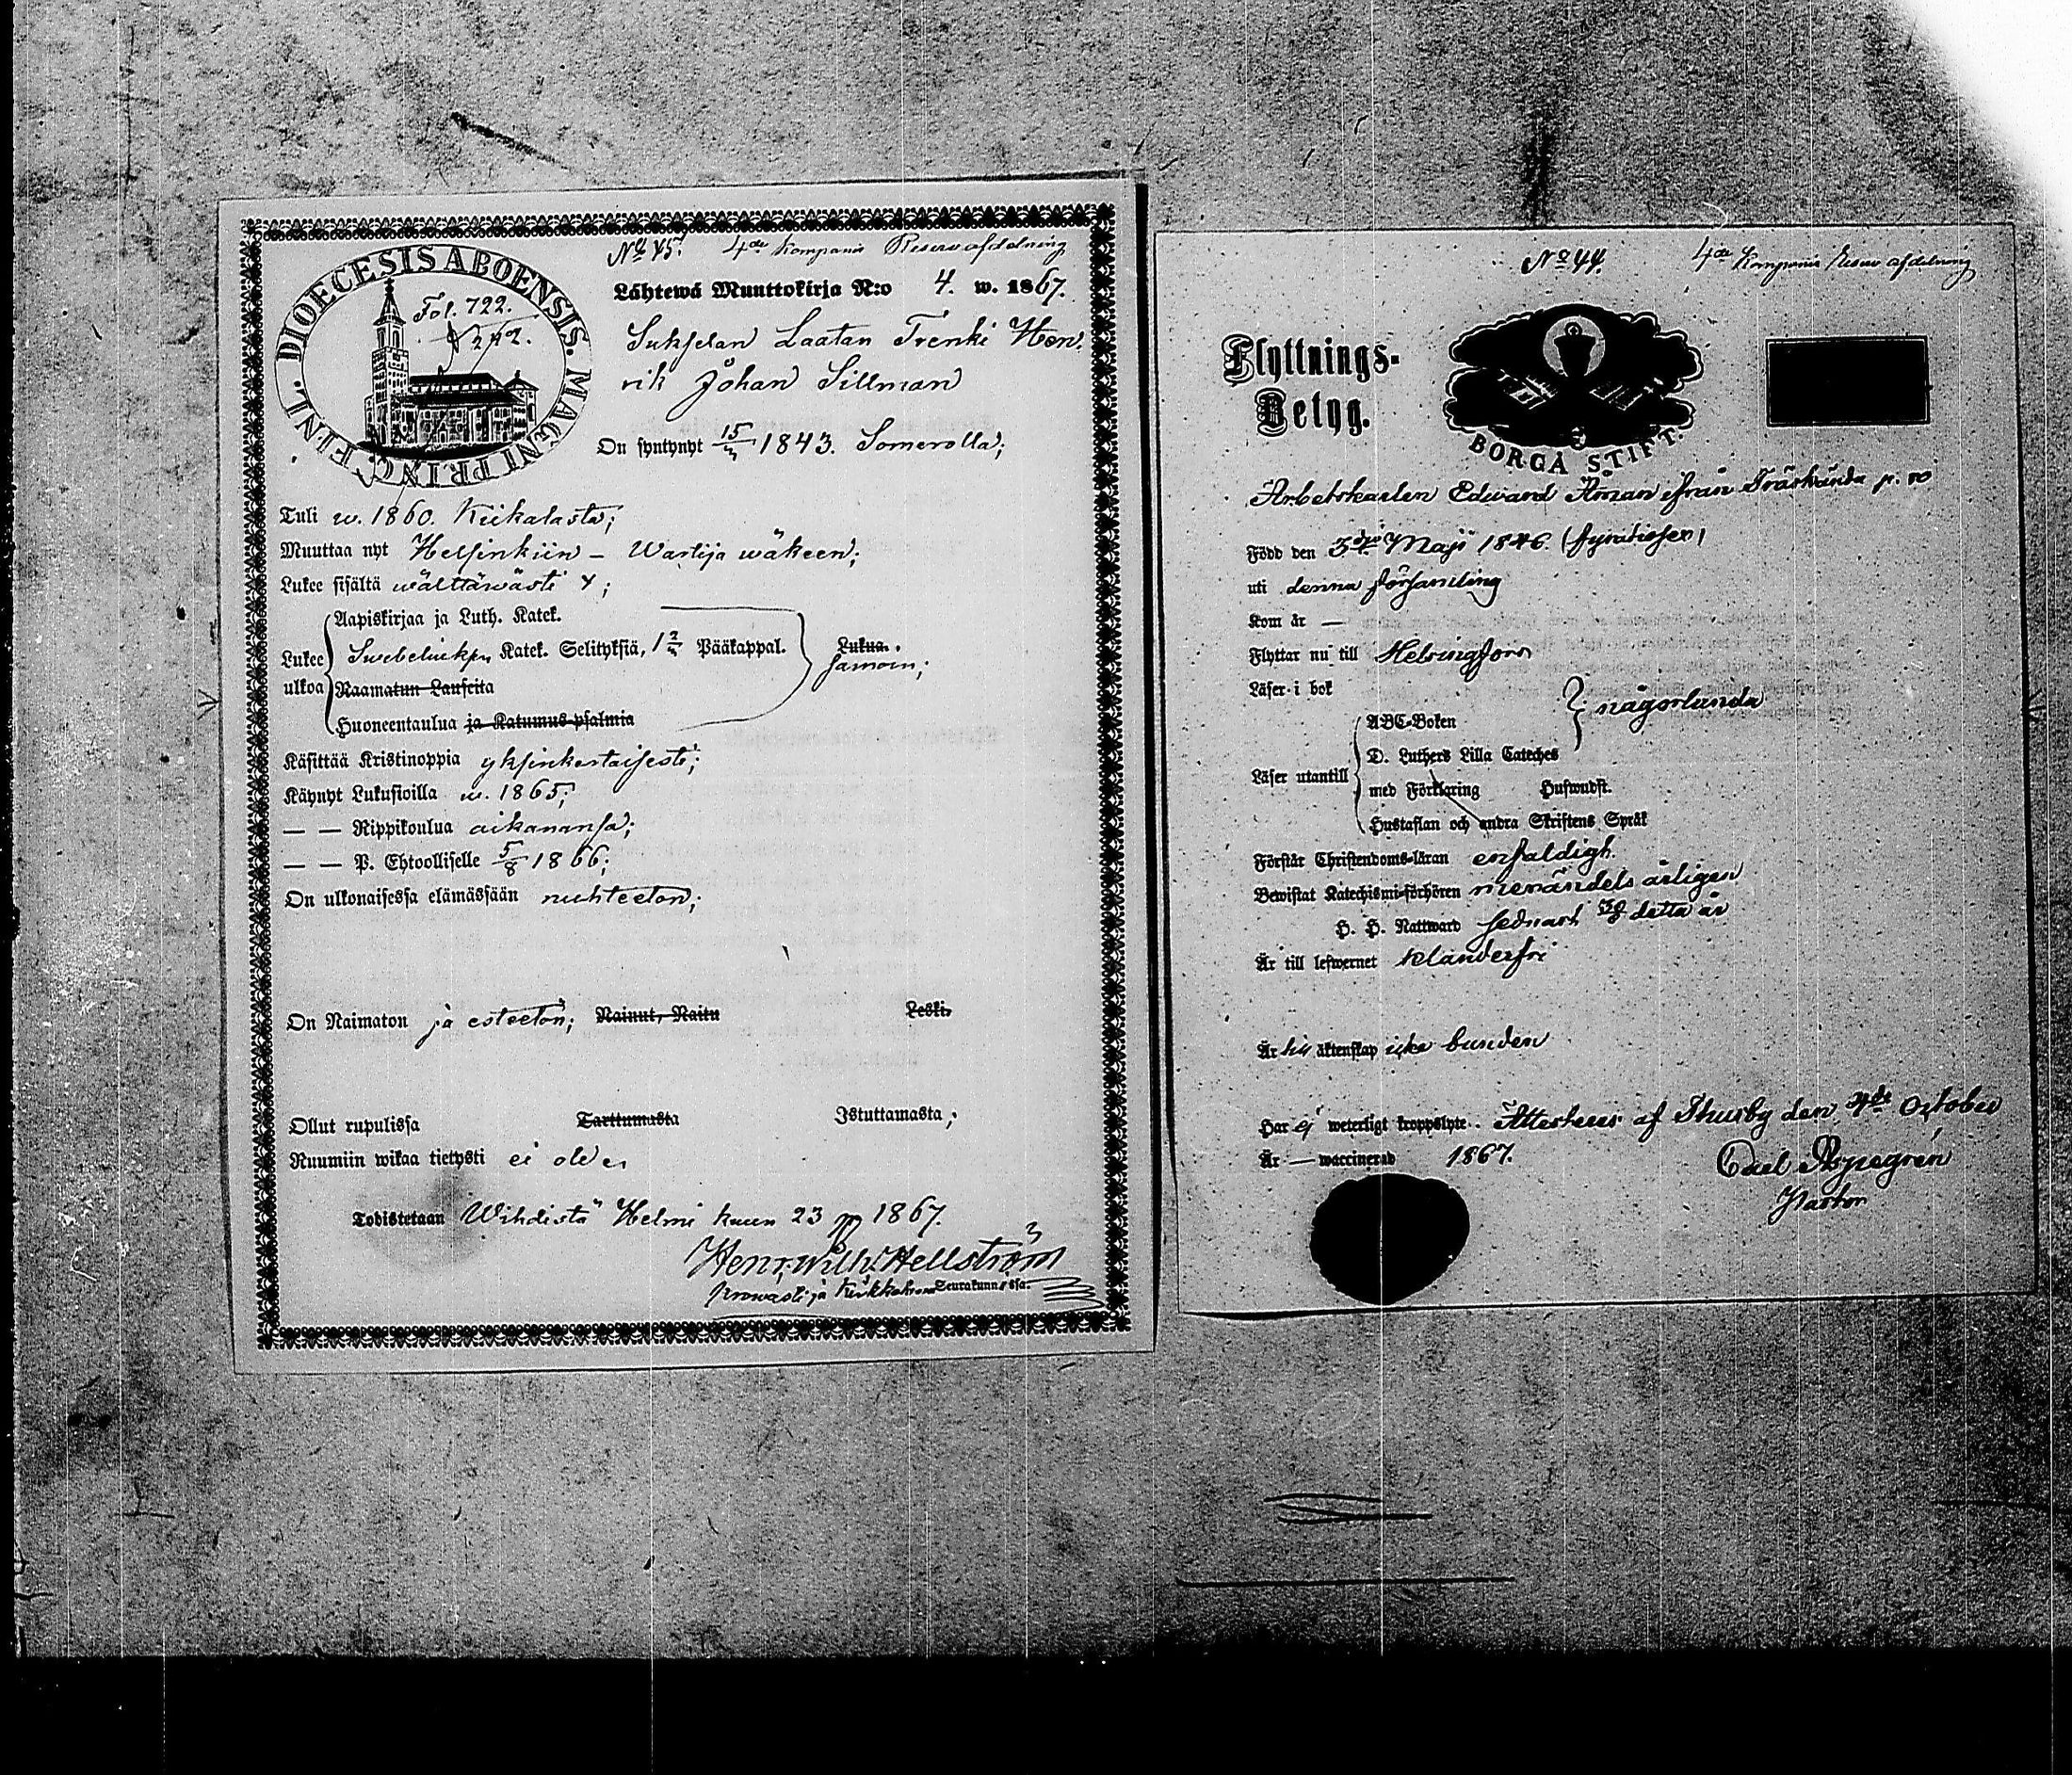 No 45. 4de Kompanie Reserv afdelning
DIOECESIS ABOENSIS. MAGNI PRINC. FINL.
Fol. 722.
Lähtewä Muuttokirja N:o 4. w. 1867.
Laatan Trenki Hen-
rik Johan Sillman
On syntynyt 15/ 1843. Somerolla;
Tuli w. 1860. Kiikalasta;
Muuttaa nyt Helsinkiin – Wartija wäkeen;
Lukee sisältä wälttäwästi
Aapiskirjaa ja Luth. Katek.
Lukee Katek. Selityksiä, Pääkappal. Lukua.
samoin;
ulkoa Raamatun Lauseita
Huoneentaulua ja Katumus-psalmia
Käsittää Kristinoppia yksinkertaisesti;
Käynyt Lukusioilla w. 1865;
— — Rippikoulua aikanansa;
— — P. Ehtoolliselle 5/8 1866;
On ulkonaisessa elämässään nuhteeton;
On Naimaton ja esteetön; Nainut, Naitu Leski.
Ollut rupulissa Tarttumasta Istuttamasta;
Ruumiin wikaa tietysti ei ole.
Todistetaan Wihdistä Helmi kuun 23 p 1867.
Henr. Wilh. Hellström
Prowasti ja Kirkkoherra Seurakunnassa.
No 44. 4de Kompanie Reserv afdelning
Flyttnings-
Betyg.
BORGÅ STIFT.
Arbetskarlen Edvard Åman ifrån Träskända
Född den 3dje Maji 1846. (fyratiosex)
uti denna församling
Kom år —
Flyttar nu till Helsingfors
Läser i bok någorlunda
ABC-Boken
D. Luthers Lilla Cateches
Läser utantill
med Förklaring Huswudst.
Hustaflan och andra Skriftens Språk
Förstår Christendoms-läran enfaldigt.
Bewistat Katechismi-förhören årligen
H. H. Nattward sednast detta år
Är till lefwernet klanderfri
Är till äktenskap icke bunden
Har ej weterligt kroppslyte. Attesteras af Thusby den October
Är — waccinerad 1867.
Carl
Pastor